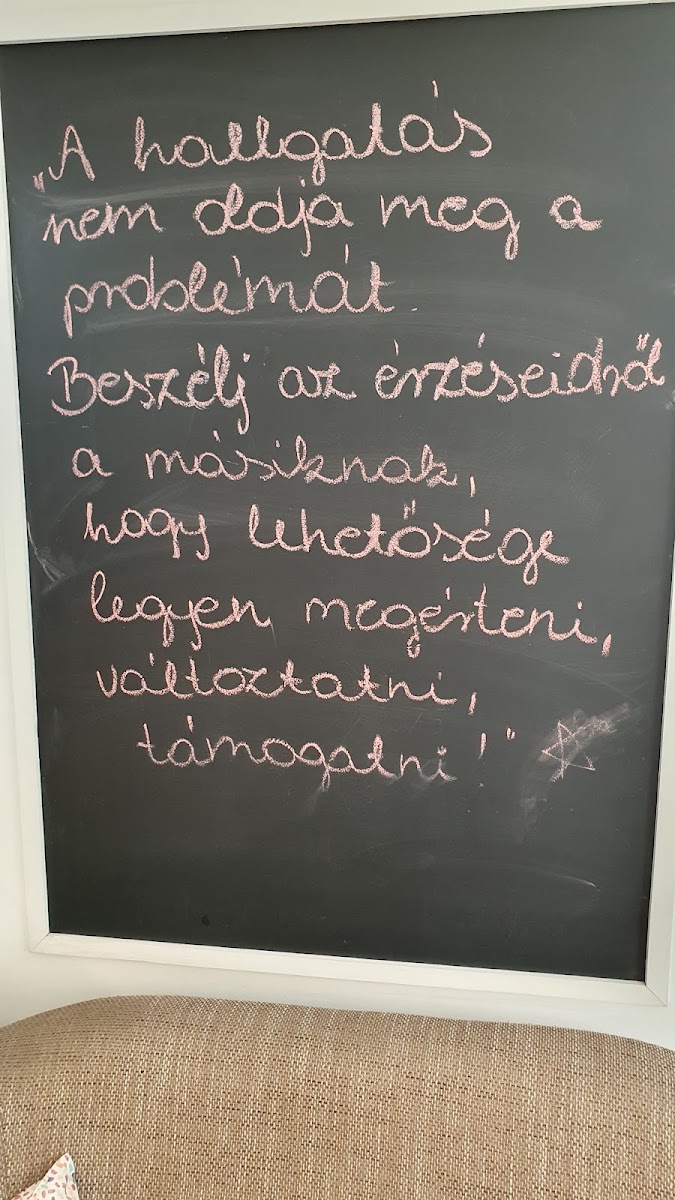 „A hallgatás
nem oldja meg a
problémát.
Beszélj az érzéseidről
a másiknak,
hogy lehetősége
legyen megérteni,
változtatni,
támogatni!"